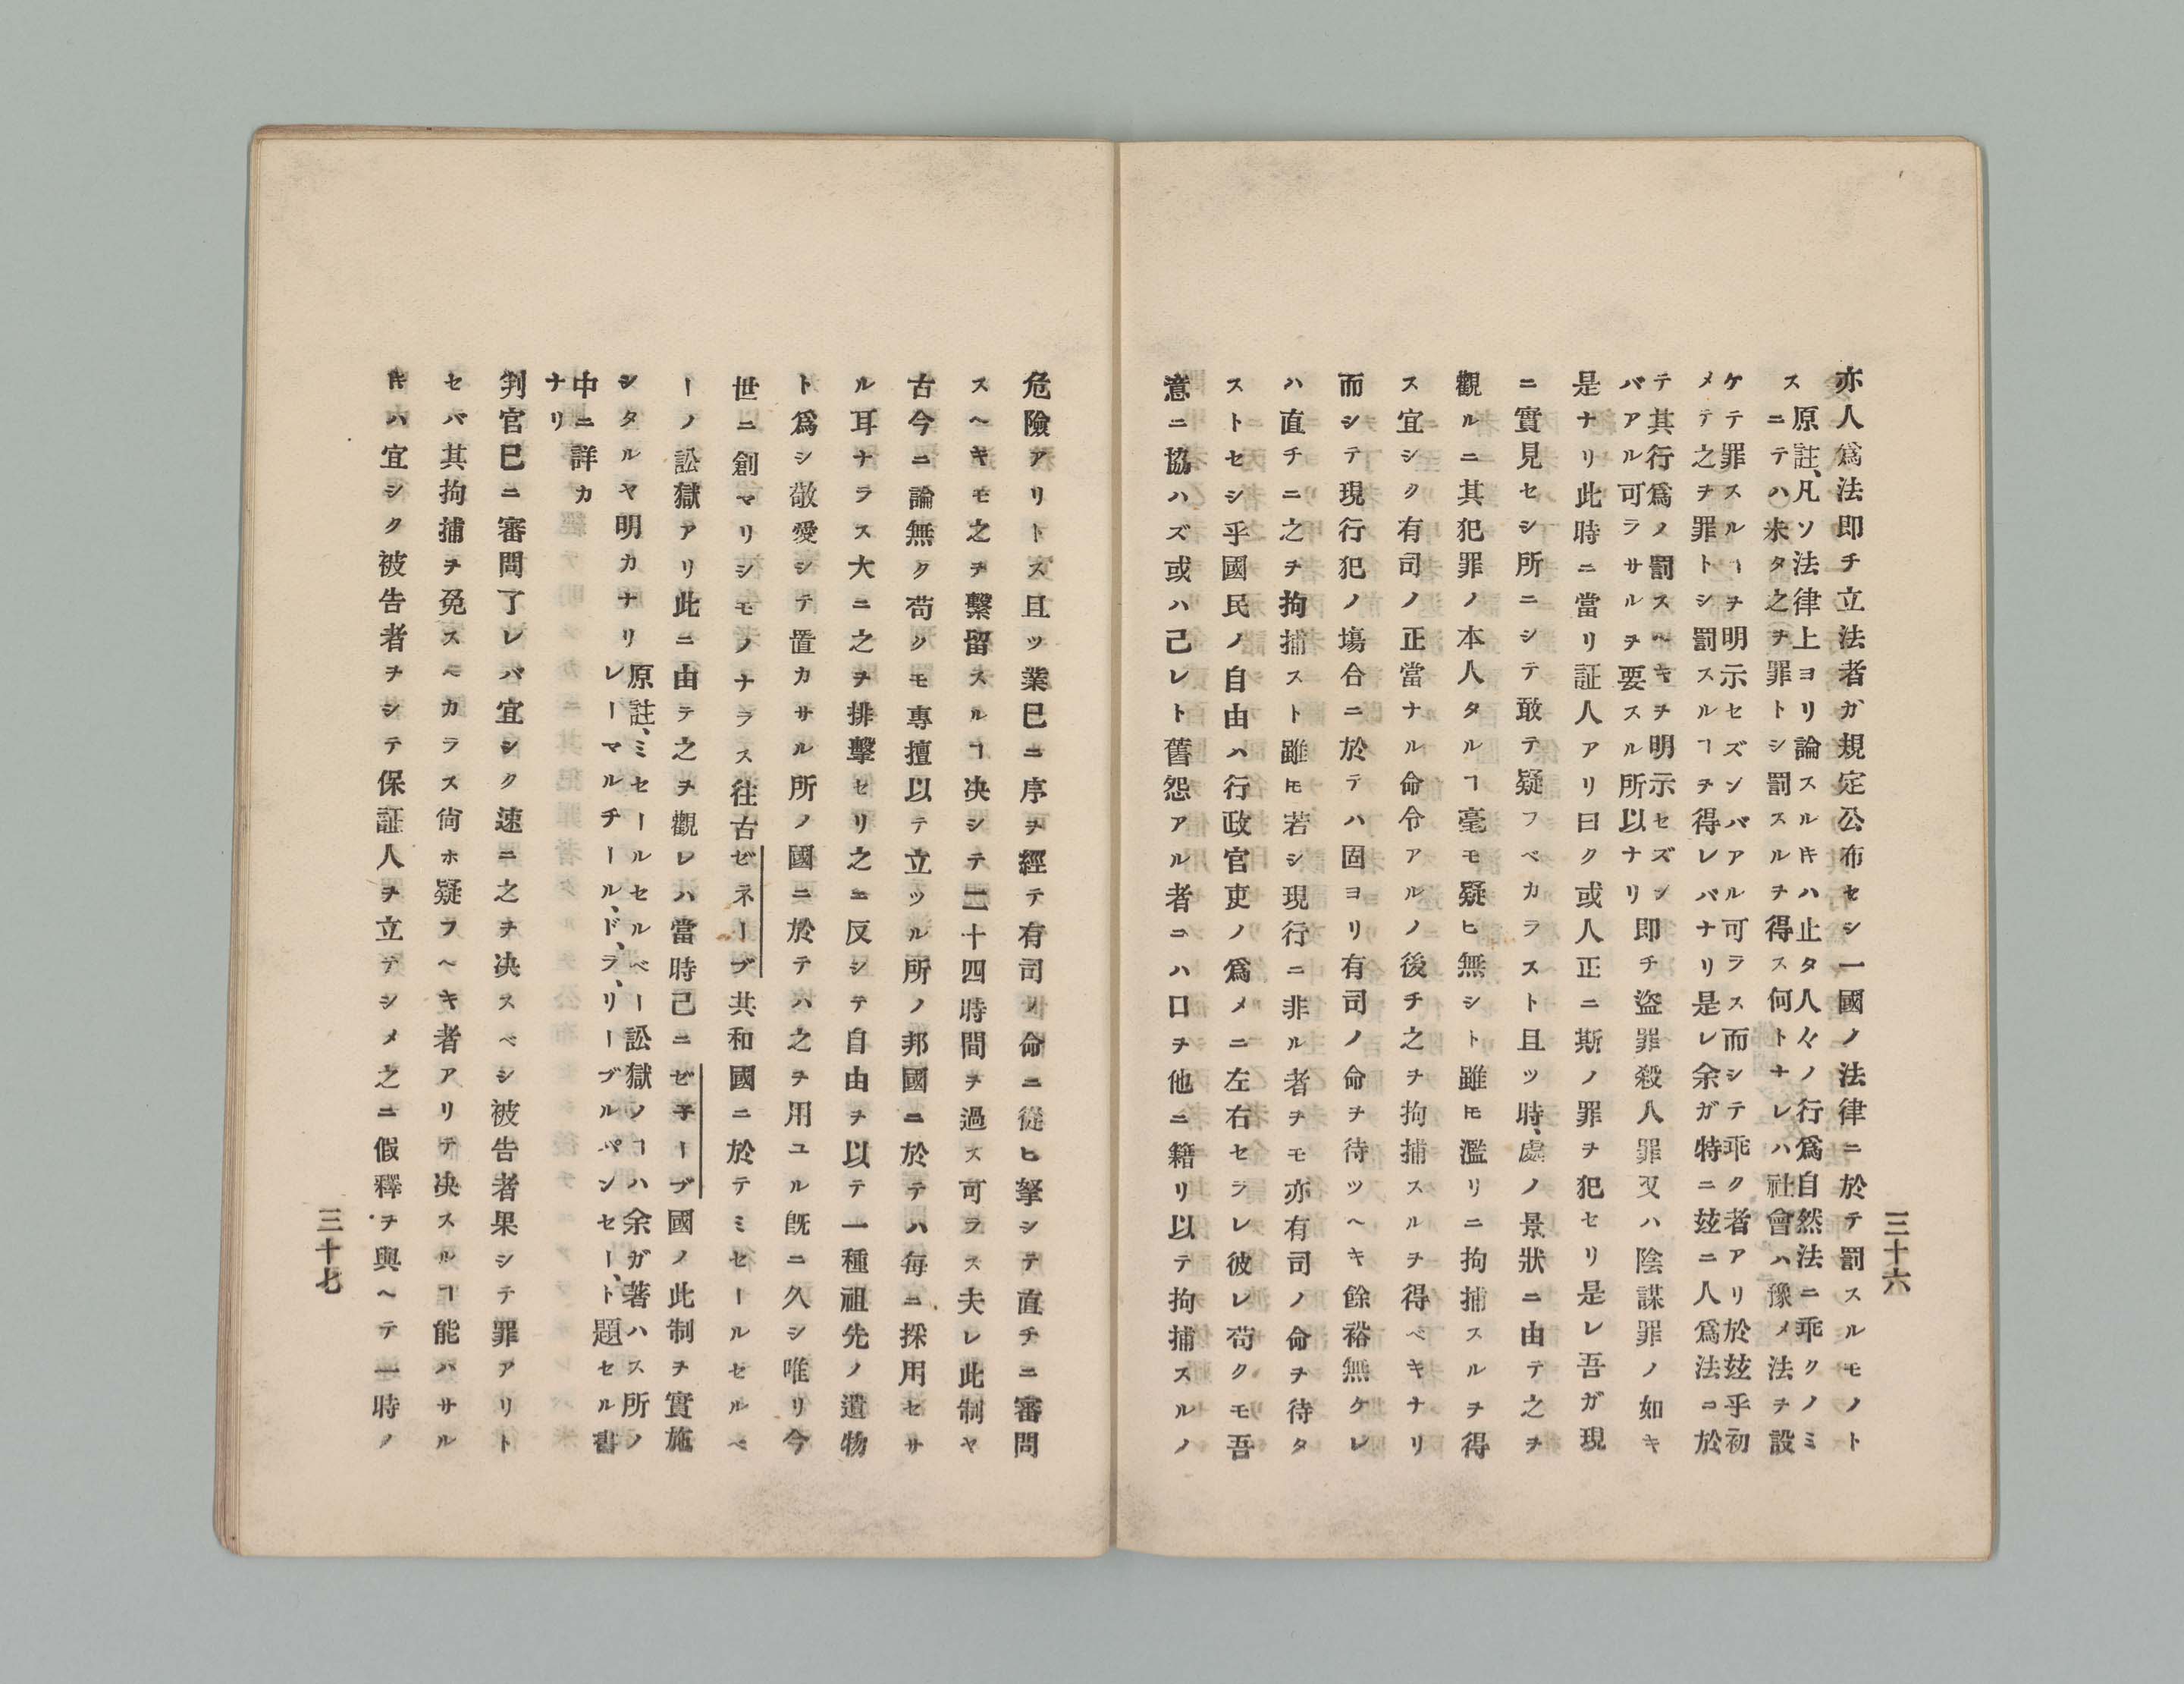 三十六
亦人爲法即チ立法者ガ規定公布セシ一國ノ法律ニ於テ罰スルモノト
ス
原註、凡ソ法律上ヨリ論スル𪜈ハ止タ人々ノ行爲自然法ニ乖クノミ
ニテハ未タ之ヲ罪トシ罰スルヲ得ス何トナレハ社會ハ豫メ法ヲ設
ケテ罪スルヿヲ明示セズンバアル可ラス而シテ乖ク者アリ於玆乎初
メテ之ヲ罪トシ罰スルヿヲ得レバナリ是レ余ガ特ニ玆ニ人爲法コ於
テ其行爲ノ罰スヘキヲ明示セズン
バアル可ラサルヲ要スル所以ナリ
即チ盜罪殺人罪又ハ陰謀罪ノ如キ
是ナリ此時ニ當リ証人アリ曰ク或人正ニ斯ノ罪ヲ犯セリ是レ吾ガ現
ニ實見セシ所ニシテ敢テ疑フベカラスト且ツ時、處ノ景狀ニ由テ之ヲ
觀ルニ其犯罪ノ本人タルヿ毫モ疑ヒ無シト雖𪜈濫リニ拘捕スルヲ得
ス宜シク有司ノ正當ナル命令アルノ後チ之ヲ拘捕スルヲ得ベキナリ
而シテ現行犯ノ塲合ニ於テハ固ヨリ有司ノ命ヲ待ツヘキ餘裕無ケレ
ハ直チニ之ヲ拘捕スト雖𪜈若シ現行ニ非ル者ヲモ亦有司ノ命ヲ待タ
ストセシ乎國民ノ自由ハ行政官吏ノ爲メニ左右セラレ彼レ苟クモ吾
意ニ協ハズ或ハ己レト舊怨アル者ニハ口ヲ他ニ籍リ以テ拘捕スルノ
危險アリトス且ツ業已ニ序ヲ經テ有司ノ命ニ從ヒ拏シテ直チニ審問
スヘキモ之ヲ繫留スルヿ决シテ二十四時間ヲ過ス可ラス夫レ此制ヤ
古今ニ論無ク苟クモ專擅以テ立ツル所ノ邦國ニ於テハ毎ニ採用セサ
ル耳ナラス大ニ之ヲ排擊セリ之ニ反シテ自由ヲ以テ一種祖先ノ遺物
ト爲シ敬愛シテ置カサル所ノ國ニ於テハ之ヲ用ユル旣ニ久シ唯リ今
世ニ創マリシモノナラス往古ゼネーブ共和國ニ於テミセールセルベ
ーノ訟獄アリ此ニ由テ之ヲ觀レハ當時已ニゼ子ーブ國ノ此制ヲ實施
シタルヤ明カナリ
原註、ミセールセルベー訟獄ノヿハ余ガ著ハス所ノ
レーマルチール、ド、ラ、リーブルペンセー、ト題セル書
中ニ詳カ
ナリ
判官已ニ審問了レバ宜シク速ニ之ヲ决スベシ被告者果シテ罪アリト
セバ其拘捕ヲ免スヘカラス尙ホ疑フヘキ者アリテ决スルヿ能ハサル
𪜈ハ宜シク被告者ヲシテ保証人ヲ立テシメ之ニ假釋ヲ與ヘテ一時ノ
三十七